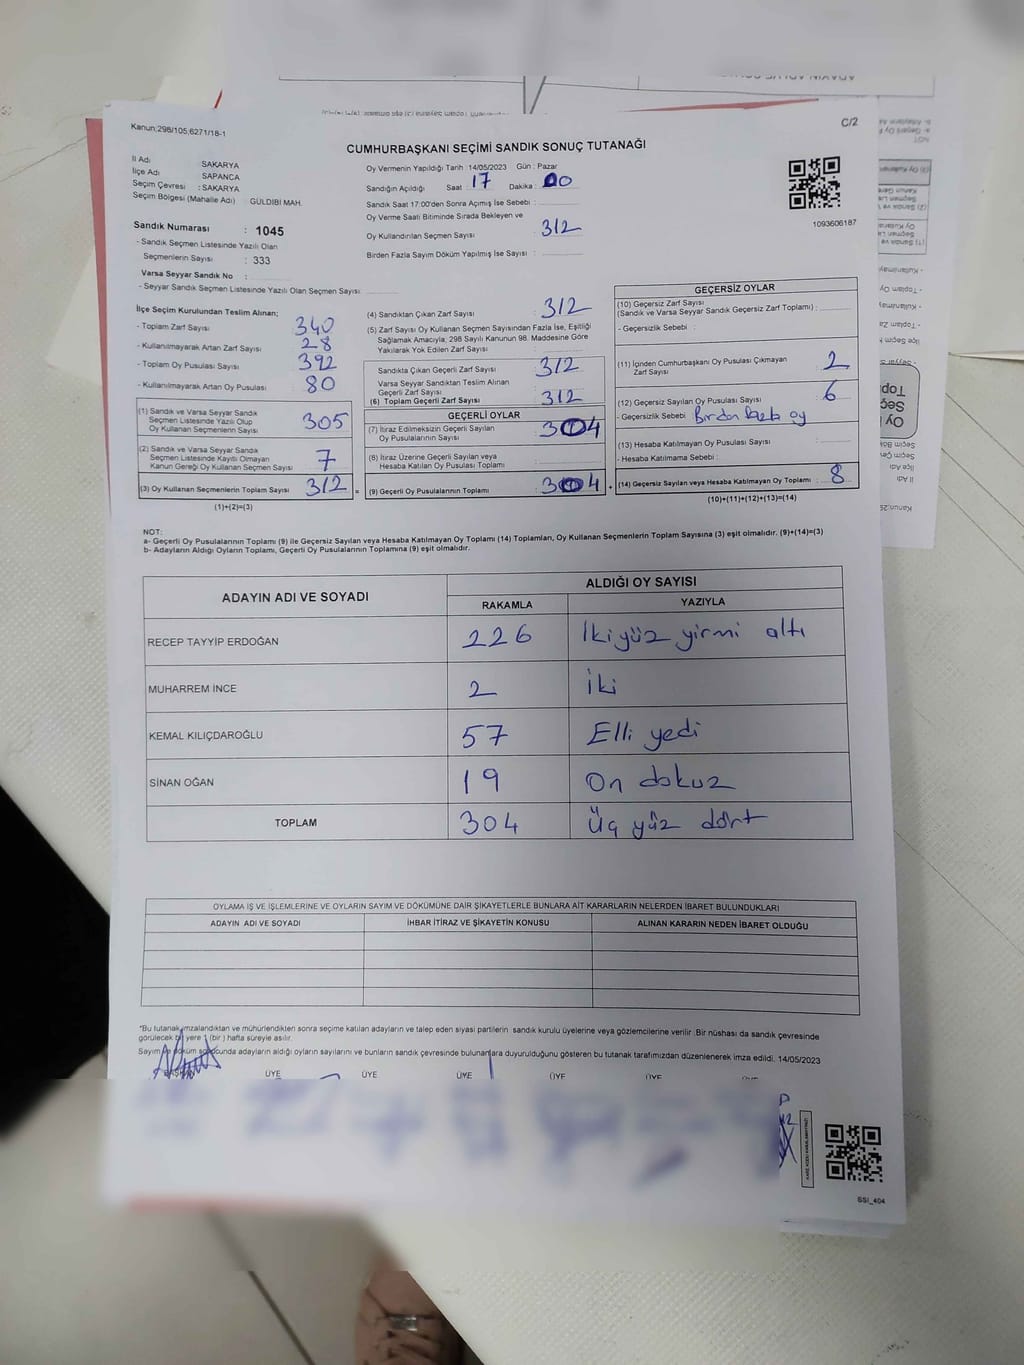 Kanun;298/105,6271/18-1
C/2
CUMHURBAŞKANI SEÇİMİ SANDIK SONUÇ TUTANAĞI
İl Adı : SAKARYA
İlçe Adı : SAPANCA
Seçim Çevresi : SAKARYA
Seçim Bölgesi (Mahalle Adı) : GÜLDİBİ MAH.
Oy Vermenin Yapıldığı Tarih :14/05/2023 Gün : Pazar
Sandığın Açıldığı Saat : 17 Dakika : 00
Sandık Saat 17:00'den Sonra Açmış İse Sebebi :
Oy Verme Saati Bitiminde Sırada Bekleyen ve
Oy Kullandırılan Seçmen Sayısı : 312
Birden Fazla Sayım Döküm Yapılmış İse Sayısı :
1093606187
Sandık Numarası : 1045
- Sandık Seçmen Listesinde Yazılı Olan
Seçmenlerin Sayısı : 333
Varsa Seyyar Sandık No :
- Seyyar Sandık Seçmen Listesinde Yazılı Olan Seçmen Sayısı:
İlçe Seçim Kurulundan Teslim Alınan;
- Toplam Zarf Sayısı : 340
- Kullanılmayarak Artan Zarf Sayısı : 28
- Toplam Oy Pusulası Sayısı : 392
- Kullanılmayarak Artan Oy Pusulası : 80
(1) Sandık ve Varsa Seyyar Sandık
Seçmen Listesinde Yazılı Olup
Oy Kullanan Seçmenlerin Sayısı : 305
(2) Sandık ve Varsa Seyyar Sandık
Seçmen Listesinde Kayıtlı Olmayan
Kanun Gereği Oy Kullanan Seçmen Sayısı : 7
(3) Oy Kullanan Seçmenlerin Toplam Sayısı : 312
(1)+(2)=(3)
(4) Sandıktan Çıkan Zarf Sayısı : 312
(5) Zarf Sayısı Oy Kullanan Seçmen Sayısından Fazla İse, Eşitliği
Sağlamak Amacıyla, 298 Sayılı Kanunun 98. Maddesine Göre
Yakılarak Yok Edilen Zarf Sayısı :
Sandıkta Çıkan Geçerli Zarf Sayısı : 312
Varsa Seyyar Sandıktan Teslim Alınan
Geçerli Zarf Sayısı :
(6) Toplam Geçerli Zarf Sayısı : 312
GEÇERLİ OYLAR
(7) İtiraz Edilmeksizin Geçerli Sayılan
Oy Pusulalarının Sayısı : 304
(8) İtiraz Üzerine Geçerli Sayılan veya
Hesaba Katılan Oy Pusulası Toplamı :
= (9) Geçerli Oy Pusulalarının Toplamı : 304
GEÇERSİZ OYLAR
(10) Geçersiz Zarf Sayısı
(Sandık ve Varsa Seyyar Sandık Geçersiz Zarf Toplamı) :
- Geçersizlik Sebebi :
(11) İçinden Cumhurbaşkanı Oy Pusulası Çıkmayan
Zarf Sayısı : 2
(12) Geçersiz Sayılan Oy Pusulası Sayısı : 6
- Geçersizlik Sebebi : Birden fazla oy
(13) Hesaba Katılmayan Oy Pusulası Sayısı :
- Hesaba Katılmama Sebebi :
+ (14) Geçersiz Sayılan veya Hesaba Katılmayan Oy Toplamı : 8
(10)+(11)+(12)+(13)=(14)
NOT:
a- Geçerli Oy Pusulalarının Toplamı (9) ile Geçersiz Sayılan veya Hesaba Katılmayan Oy Toplamı (14) Toplamları, Oy Kullanan Seçmenlerin Toplam Sayısına (3) eşit olmalıdır. (9)+(14)=(3)
b- Adayların Aldığı Oyların Toplamı, Geçerli Oy Pusulalarının Toplamına (9) eşit olmalıdır.
ADAYIN ADI VE SOYADI
ALDIĞI OY SAYISI
RAKAMLA YAZIYLA
RECEP TAYYİP ERDOĞAN 226 İkiyüz yirmi altı
MUHARREM İNCE 2 İki
KEMAL KILIÇDAROĞLU 57 Elli yedi
SİNAN OĞAN 19 On dokuz
TOPLAM 304 Üç yüz dört
OYLAMA İŞ VE İŞLEMLERİNE VE OYLARIN SAYIM VE DÖKÜMÜNE DAİR ŞİKAYETLERLE BUNLARA AİT KARARLARIN NELERDEN İBARET BULUNDUKLARI
ADAYIN ADI VE SOYADI İHBAR İTİRAZ VE ŞİKAYETİN KONUSU ALINAN KARARIN NEDEN İBARET OLDUĞU
*Bu tutanak imzalandıktan ve mühürlendikten sonra seçime katılan adayların ve talep eden siyasi partilerin sandık kurulu üyelerine veya gözlemcilerine verilir. Bir nüshası da sandık çevresinde
görülecek bir yere 1 (bir ) hafta süreyle asılır.
Sayım ve döküm sonucunda adayların aldığı oyların sayılarını ve bunların sandık çevresinde bulunanlara duyurulduğunu gösteren bu tutanak tarafımızdan düzenlenerek imza edildi. 14/05/2023
BAŞKAN ÜYE ÜYE ÜYE ÜYE ÜYE
SSI_404